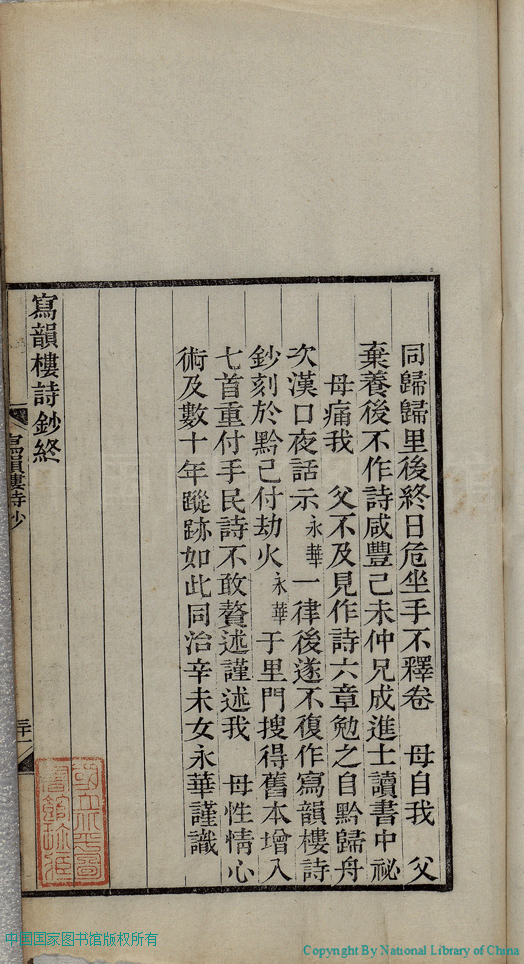 同歸歸里後終日危坐手不釋卷　母自我　父
棄養後不作詩咸豐己未仲兄成進士讀書中祕
母痛我　父不及見作詩六章勉之自黔歸舟
次漢口夜話示永華一律後遂不復作寫韻樓詩
鈔刻於黔已付劫火永華于里門搜得舊本增入
七首重付手民詩不敢贅述謹述我　母性情心
術及數十年蹤跡如此同治辛未女永華謹識
寫韻樓詩鈔終
寫韻樓詩鈔
三十一
中国国家图书馆版权所有
Copyright By National Library of China